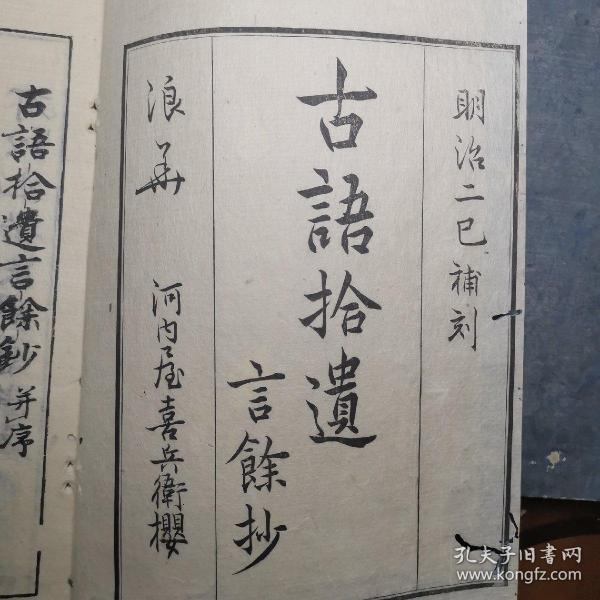 明治二巳補刻
古語拾遺
言餘抄
浪華 河内屋喜兵衛櫻
古語拾遺言餘鈔 并序
孔夫子旧书网
www.kongfz.com